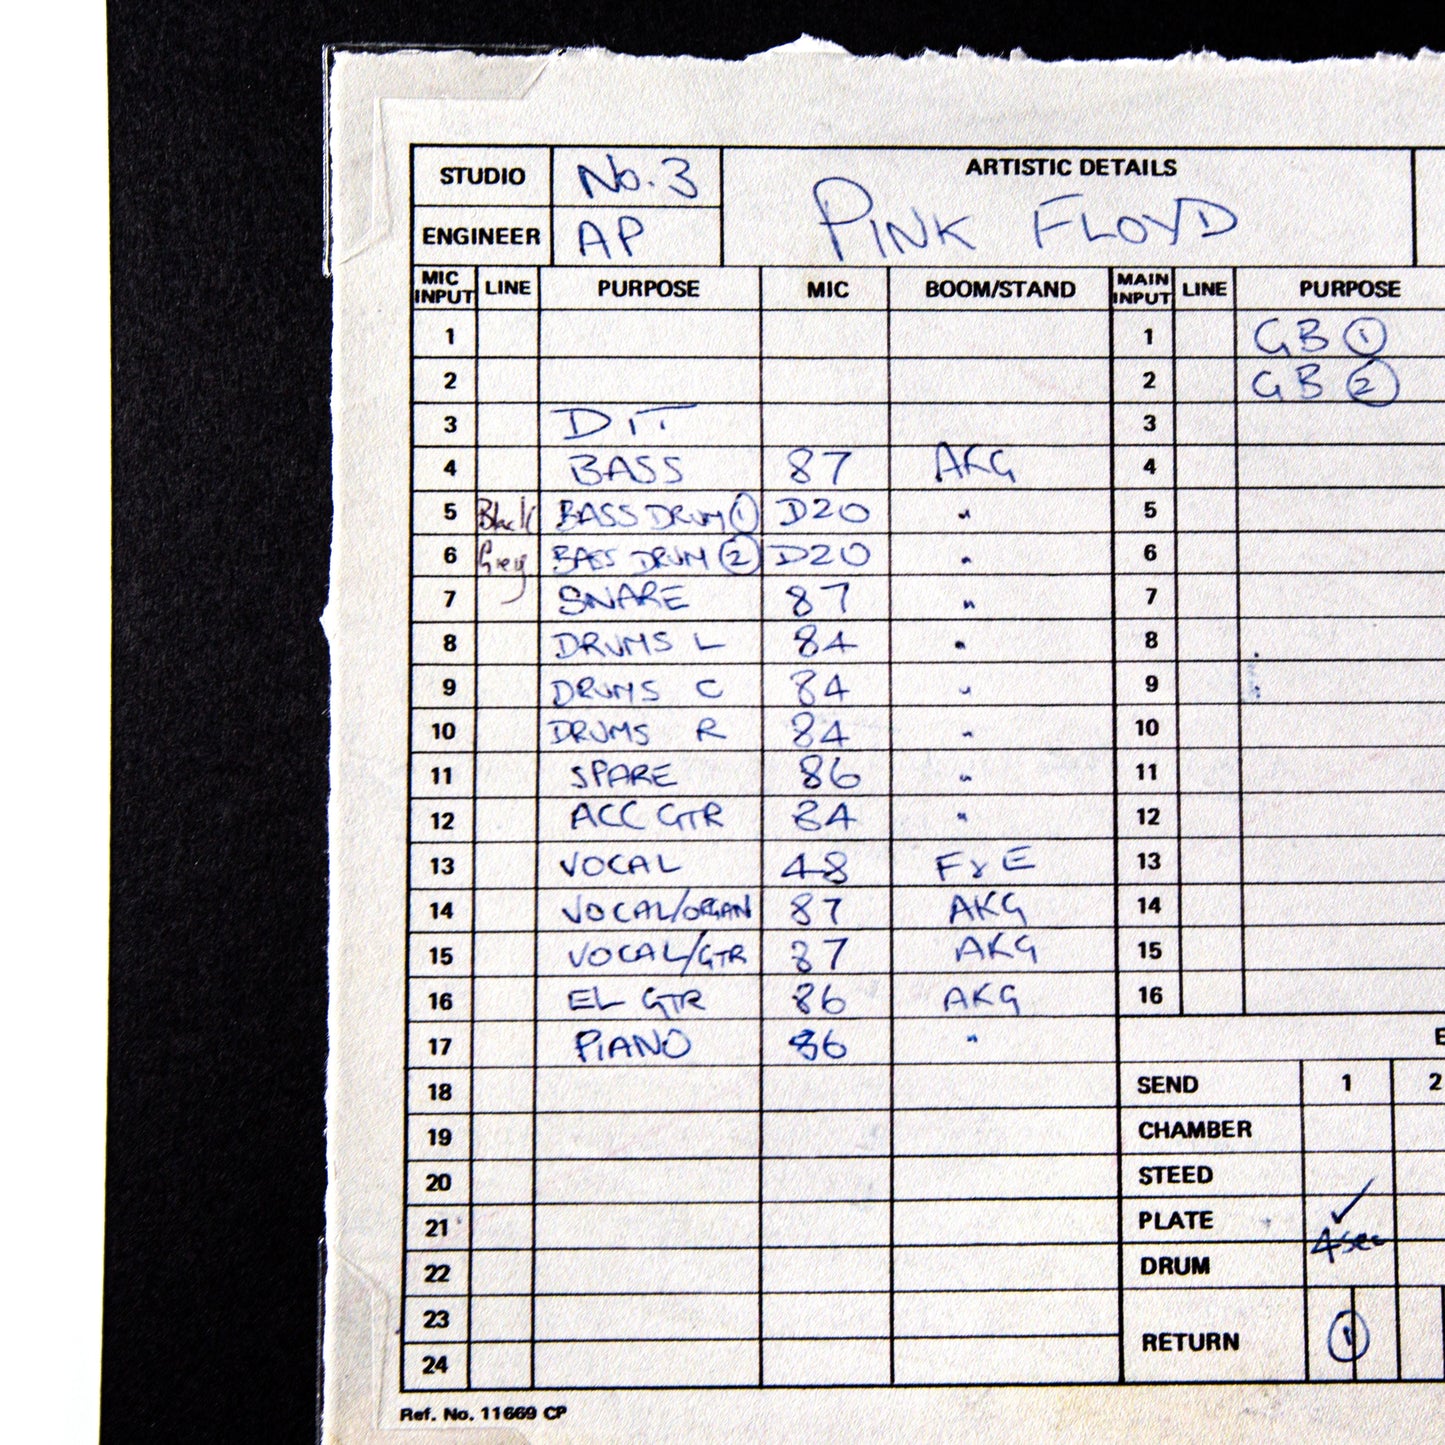 STUDIO No. 3 ARTISTIC DETAILS
ENGINEER AP PINK FLOYD
MIC INPUT LINE PURPOSE MIC BOOM/STAND MAIN INPUT LINE PURPOSE
1 1 GB 1
2 2 GB 2
3 DIT 3
4 BASS 87 AKG 4
5 Black BASS DRUM 1 D20 " 5
6 Grey BASS DRUM 2 D20 " 6
7 SNARE 87 " 7
8 DRUMS L 84 " 8
9 DRUMS C 84 " 9
10 DRUMS R 84 " 10
11 SPARE 86 " 11
12 ACC GTR 84 " 12
13 VOCAL 48 F & E 13
14 VOCAL/ORGAN 87 AKG 14
15 VOCAL/GTR 87 AKG 15
16 EL GTR 86 AKG 16
17 PIANO 86 "
18 SEND 1 2
19 CHAMBER
20 STEED
21 PLATE ✓
22 DRUM 4 sec
23 RETURN 1
24
Ref. No. 11669 CP